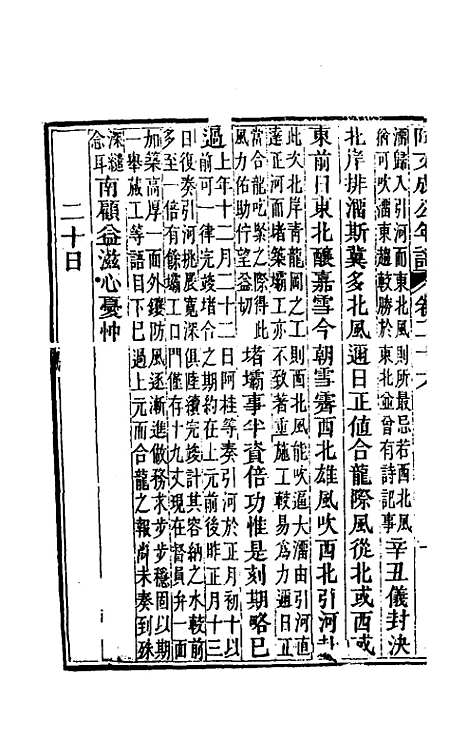 阿文成公年譜 卷二十六
溜歸入引河而東北風則所最忌若西北風
猶可吹溜東趨較勝於東北並曾有詩記事
辛丑儀封決
北岸排溜斯冀多北風邇日正值合龍際風從北或西或
東前日東北釀嘉雪今朝雪霽西北雄風吹西北引河
此次北岸青龍岡之工則西北風能吹逼大溜由引河直
達正河而堵築壩工亦不致著重施工較易為力邇日正
當合龍吃緊之際得此
風力佑助佇望益切
堵壩事半資倍功惟是刻期略已
過
上年十二月二十二日阿桂等奏引河於正月初十以
前可一律完竣堵合之期約在上元前後昨正月十三
日復奏引河挑展寬深俱陸續完竣計其容納之水較前
多至一倍有餘壩工口門僅有十九丈現在督員弁一面
加築高厚一面外鑲防風逐漸進做務求步步穩固以期
一舉蕆工等語目下已過上元而合龍之報尚未奏到殊
深縫
念耳
南顧益滋心憂忡
二十日